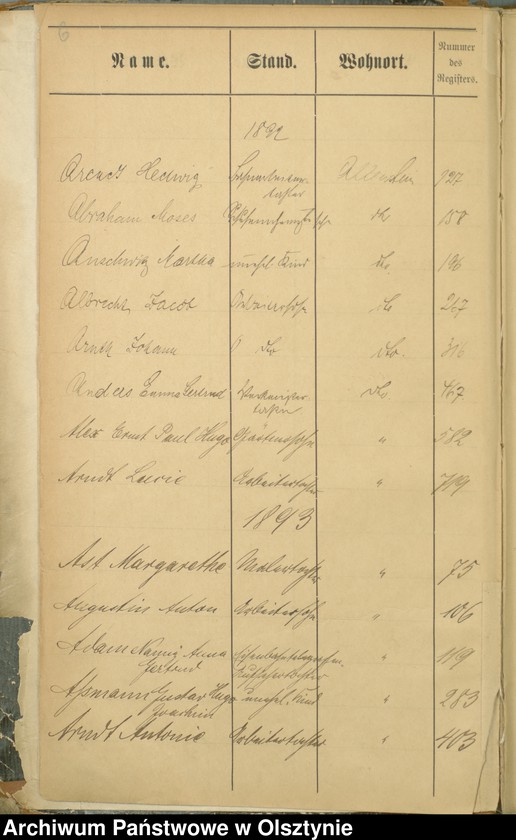 6
Name. Stand. Wohnort. Nummer des Registers.
1892
Arendt Hedwig Bahnarbeiter- Allenstein 127
tochter
Abraham Moses do 150
Anschwitz Martha unehel. Kind do 196
Albrecht Jacob Arbeitersohn do 267
Arndt Johann do do. 316
Anders Emma Gertrud do 467
Alex Ernst Paul Hugo " 582
Arndt Lucie Arbeitertochter " 719
1893
Ast Margarethe Malertochter " 75
Augustin Anton Arbeitersohn " 106
Adam Anna " 119
Gertrud
Aßmann Gustav Hugo unehel. Kind " 283
Joachim
Arndt Antonie Arbeitertochter " 403
Archiwum Państwowe w Olsztynie